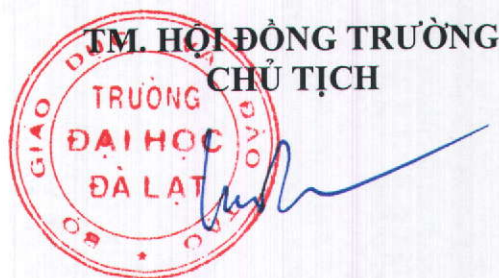 TM. HỘI ĐỒNG TRƯỜNG
CHỦ TỊCH
BỘ GIÁO DỤC VÀ ĐÀO TẠO
TRƯỜNG
ĐẠI HỌC
ĐÀ LẠT